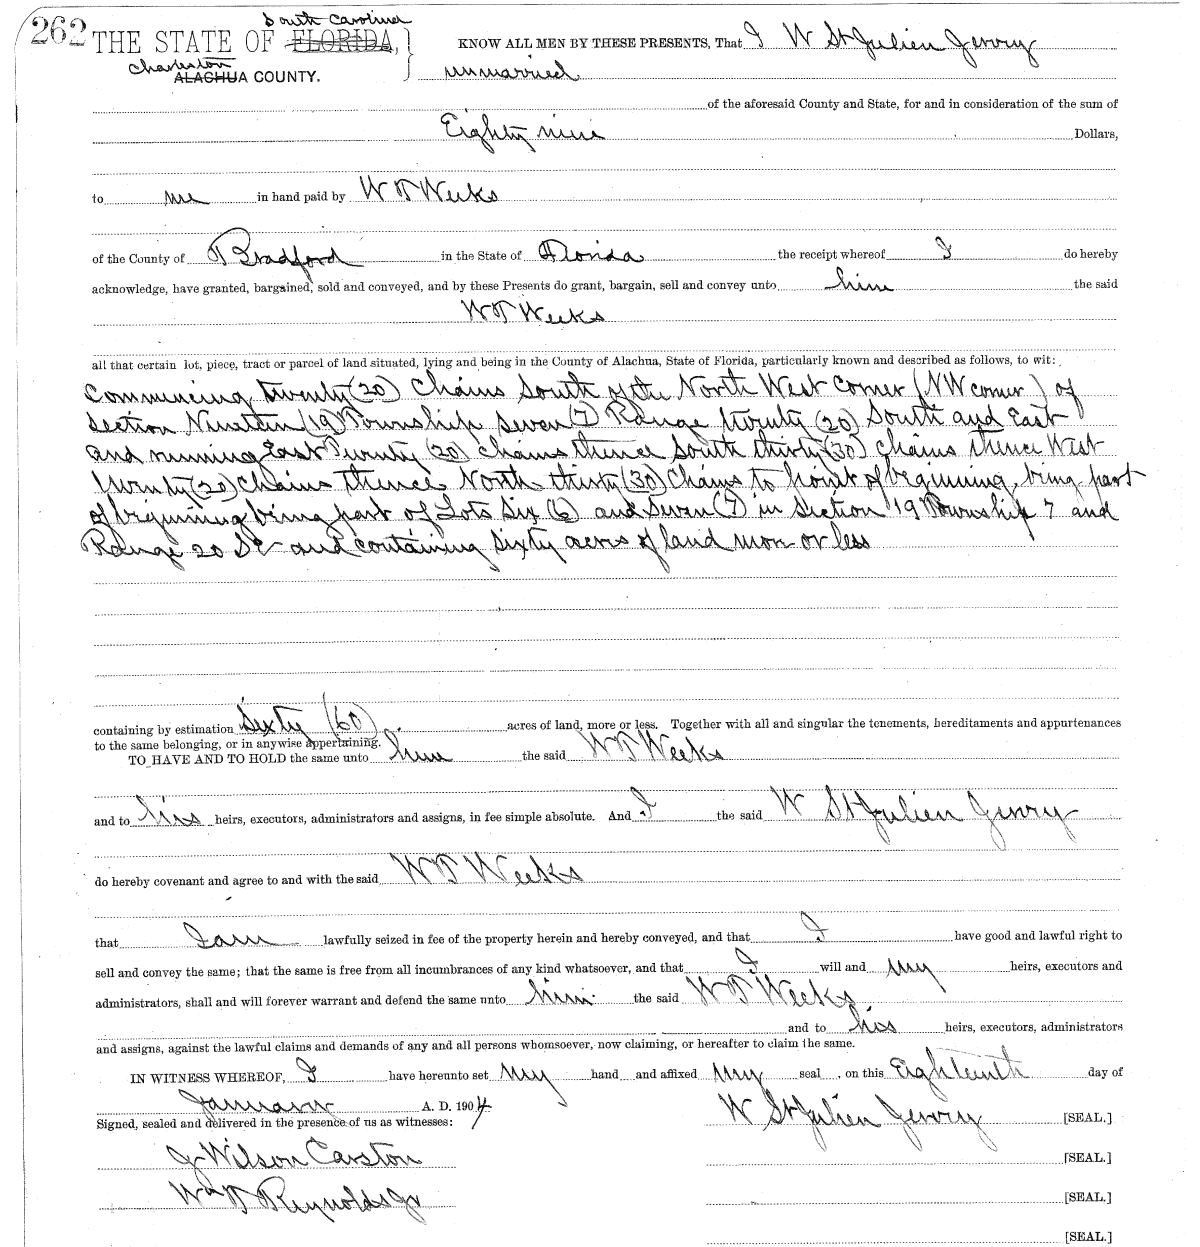 262 THE STATE OF FLORIDA, South Carolina
Charleston
ALACHUA COUNTY.
KNOW ALL MEN BY THESE PRESENTS, That I W St Julien Jervy
unmarried
of the aforesaid County and State, for and in consideration of the sum of
Eighty nine Dollars,
to me in hand paid by W T Weeks
of the County of Bradford in the State of Florida the receipt whereof I do hereby
acknowledge, have granted, bargained, sold and conveyed, and by these Presents do grant, bargain, sell and convey unto him the said
W T Weeks
all that certain lot, piece, tract or parcel of land situated, lying and being in the County of Alachua, State of Florida, particularly known and described as follows, to wit:
Commencing twenty (20) Chains South of the North West Corner (NW corner) of
Section Nineteen (19) Township Seven (7) Range twenty (20) South and East
and running East Twenty (20) chains thence South thirty (30) chains thence West
twenty (20) Chains thence North thirty (30) Chains to point of beginning, being part
of beginning being part of Lots Six (6) and Seven (7) in Section 19 Township 7 and
Range 20 S E and containing Sixty acres of land more or less
containing by estimation Sixty (60) acres of land, more or less. Together with all and singular the tenements, hereditaments and appurtenances
to the same belonging, or in anywise appertaining.
TO HAVE AND TO HOLD the same unto him the said W T Weeks
and to his heirs, executors, administrators and assigns, in fee simple absolute. And I the said W St Julien Jervy
do hereby covenant and agree to and with the said W T Weeks
that I am lawfully seized in fee of the property herein and hereby conveyed, and that I have good and lawful right to
sell and convey the same; that the same is free from all incumbrances of any kind whatsoever, and that I will and my heirs, executors and
administrators, shall and will forever warrant and defend the same unto him the said W T Weeks
and to his heirs, executors, administrators
and assigns, against the lawful claims and demands of any and all persons whomsoever, now claiming, or hereafter to claim the same.
IN WITNESS WHEREOF, I have hereunto set my hand and affixed my seal, on this Eighteenth day of
January A. D. 1904
Signed, sealed and delivered in the presence of us as witnesses:
W St Julien Jervy [SEAL.]
J Wilson Carston [SEAL.]
Wm T Reynolds Jr [SEAL.]
[SEAL.]